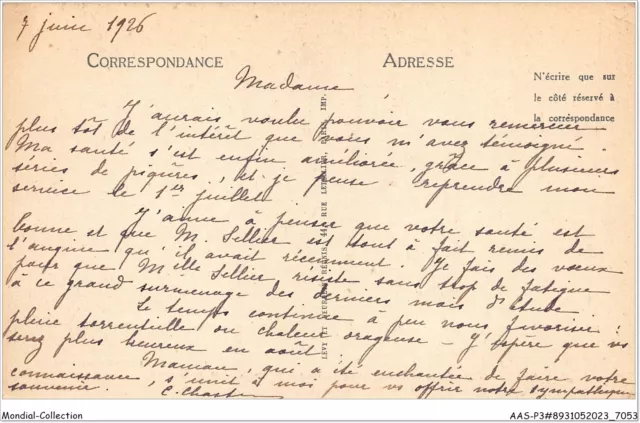 7 juin 1926
CORRESPONDANCE
ADRESSE
N'écrire que sur
le côté réservé à
la correspondance
Madame
J'aurais voulu pouvoir vous remercier
plus tôt de l'intérêt que vous m'avez témoigné.
Ma santé s'est enfin améliorée, grâce à plusieurs
séries de piqûres, et je pense reprendre mon
service le 1er juillet
J'aime à penser que votre santé est
bonne et que M. Sellier est tout à fait remis de
l'angine qu'il avait récemment. Je fais des vœux
pour que Mlle Sellier résiste sans trop de fatigue
à ce grand surmenage des derniers mois d'étude
Le temps continue à peu nous favoriser :
pluie torrentielle ou chaleur orageuse - J'espère que vs
serez plus heureux en août.
Maman, qui a été enchantée de faire votre
connaissance, s'unit à moi pour vs offrir notre sympathique
souvenir.
LÉVY ET NEURDEIN RÉUNIS, 44, RUE LETELLIER, PARIS IMP.
Mondial-Collection
AAS-P3#8931052023_7053